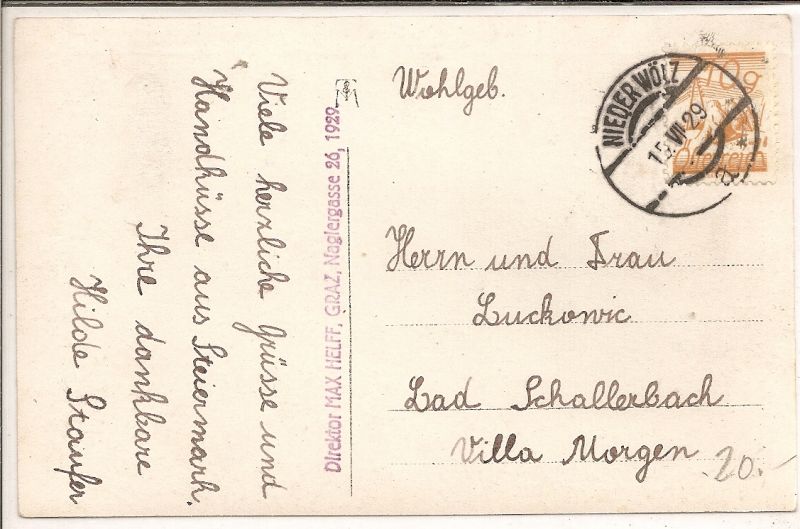 Viele herzliche Grüsse und
Handküsse aus Steiermark.
Ihre dankbare
Hilde Staufer
Direktor MAX HELFF, GRAZ, Naglergasse 26, 1929
Wohlgeb.
Herrn und Frau
Luckowic
Bad Schallerbach
Villa Morgen
20.-
NIEDERWÖLZ
15.VI.29
* a *
10g
Österreich